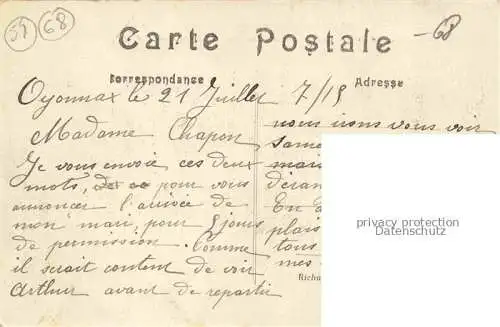 59
68
68
Carte Postale
Correspondance
Adresse
Oyonnax le 21 Juillet 7/15
Madame Chapon
Je vous envoie ces deux
mots, pour vous
annoncer l'arrivée de
mon mari, pour 8 jours
de permission. Comme
il serait content de voir
Arthur avant de repartir
nous irons vous voir
same
mais
déran
En a
plais
tous
mes
Richa
privacy protection
Datenschutz